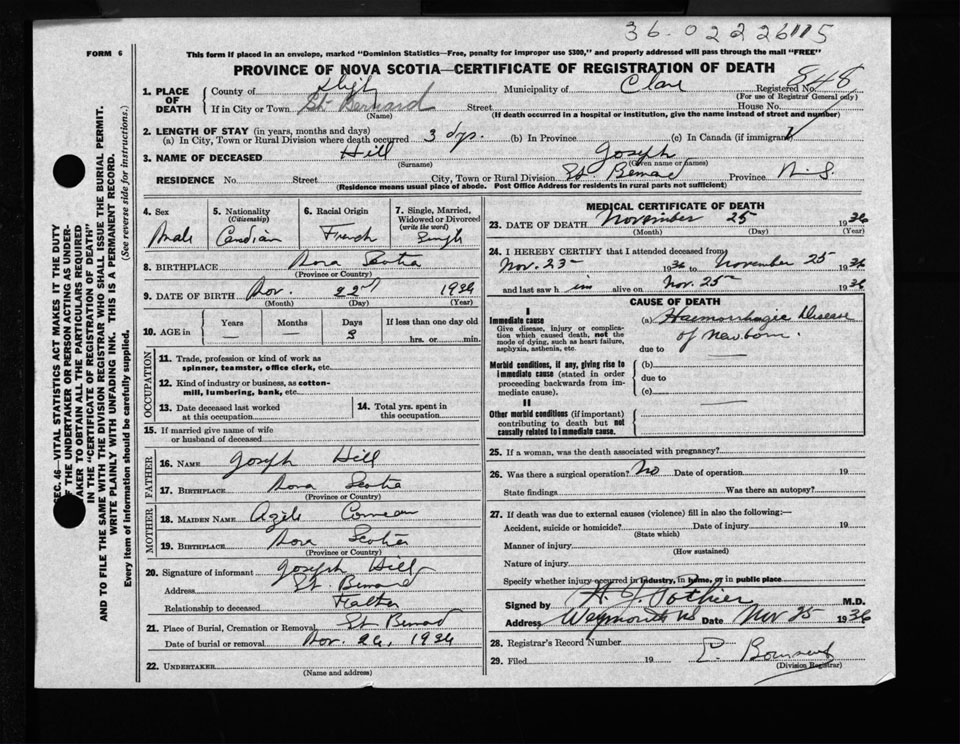 36-022261115
FORM 6
This form if placed in an envelope, marked "Dominion Statistics—Free, penalty for improper use $300," and properly addressed will pass through the mail "FREE"
PROVINCE OF NOVA SCOTIA—CERTIFICATE OF REGISTRATION OF DEATH
848
1. PLACE OF DEATH
County of Digby Municipality of Clare Registered No.
(For use of Registrar General only)
If in City or Town St. Bernard Street House No.
(Name) (If death occurred in a hospital or institution, give the name instead of street and number)
2. LENGTH OF STAY (in years, months and days)
(a) In City, Town or Rural Division where death occurred 3 dys. (b) In Province (c) In Canada (if immigrant)
3. NAME OF DECEASED Hill Joseph
(Surname) (Given name or names)
RESIDENCE No. Street City, Town or Rural Division St. Bernard Province N.S.
(Residence means usual place of abode. Post Office Address for residents in rural parts not sufficient)
4. Sex Male
5. Nationality (Citizenship) Canadian
6. Racial Origin French
7. Single, Married, Widowed or Divorced (write the word) Single
8. BIRTHPLACE Nova Scotia
(Province or Country)
9. DATE OF BIRTH Nov. 22 1936
(Month) (Day) (Year)
10. AGE in Years — Months — Days 3 If less than one day old hrs. or min.
OCCUPATION
11. Trade, profession or kind of work as spinner, teamster, office clerk, etc.
12. Kind of industry or business, as cotton-mill, lumbering, bank, etc.
13. Date deceased last worked at this occupation
14. Total yrs. spent in this occupation
15. If married give name of wife or husband of deceased
FATHER
16. NAME Joseph Hill
17. BIRTHPLACE Nova Scotia
(Province or Country)
MOTHER
18. MAIDEN NAME Comeau
19. BIRTHPLACE Nova Scotia
(Province or Country)
20. Signature of informant Joseph Hill
Address St Bernard
Relationship to deceased Father
21. Place of Burial, Cremation or Removal St Bernard
Date of burial or removal Nov. 26, 1936
22. UNDERTAKER
(Name and address)
MEDICAL CERTIFICATE OF DEATH
23. DATE OF DEATH November 25 1936
(Month) (Day) (Year)
24. I HEREBY CERTIFY that I attended deceased from
Nov. 23 1936 to November 25 1936
and last saw h im alive on Nov. 25 1936
CAUSE OF DEATH
I
Immediate cause
Give disease, injury or complication which caused death, not the mode of dying, such as heart failure, asphyxia, asthenia, etc.
(a) Haemorrhagic Disease
of Newborn
due to
Morbid conditions, if any, giving rise to immediate cause (stated in order proceeding backwards from immediate cause).
(b)
due to
(c)
II
Other morbid conditions (if important) contributing to death but not causally related to immediate cause.
25. If a woman, was the death associated with pregnancy?
26. Was there a surgical operation? No Date of operation 19
State findings Was there an autopsy?
27. If death was due to external causes (violence) fill in also the following:—
Accident, suicide or homicide? Date of injury 19
(State which)
Manner of injury
(How sustained)
Nature of injury
Specify whether injury occurred in industry, in home, or in public place
Signed by Pothier M.D.
Address Weymouth NS Date Nov 25 1936
28. Registrar's Record Number
29. Filed 19
(Division Registrar)
SEC. 46—VITAL STATISTICS ACT MAKES IT THE DUTY
OF THE UNDERTAKER OR PERSON ACTING AS UNDER-
TAKER TO OBTAIN ALL THE PARTICULARS REQUIRED
IN THE "CERTIFICATE OF REGISTRATION OF DEATH"
AND TO FILE THE SAME WITH THE DIVISION REGISTRAR WHO SHALL ISSUE THE BURIAL PERMIT.
WRITE PLAINLY WITH UNFADING INK. THIS IS A PERMANENT RECORD.
Every item of information should be carefully supplied. (See reverse side for instructions.)